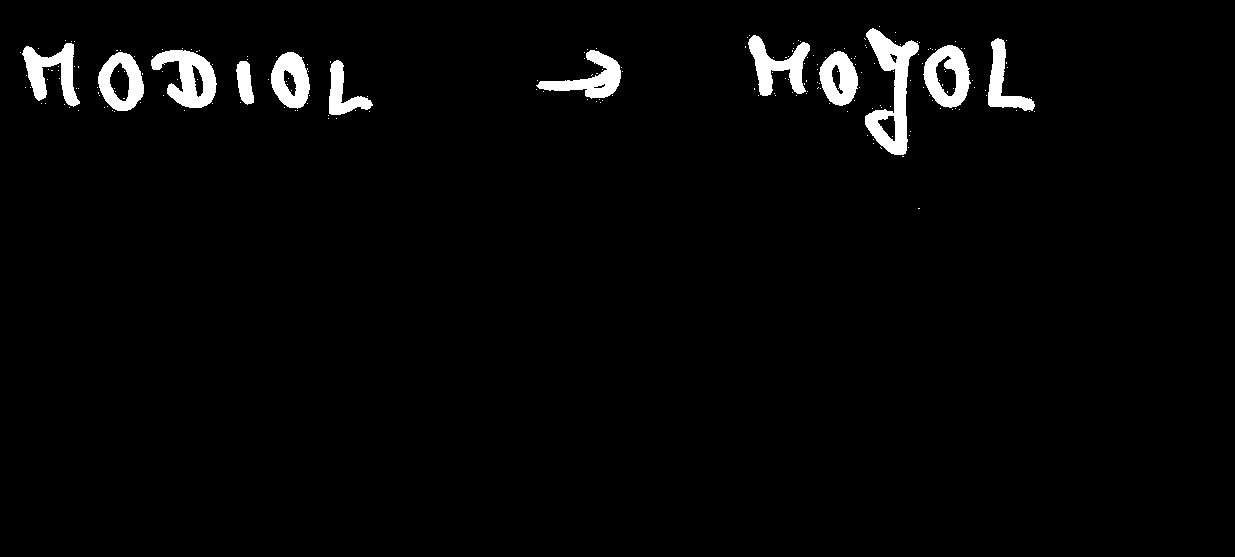 MODIOL → MOJOL